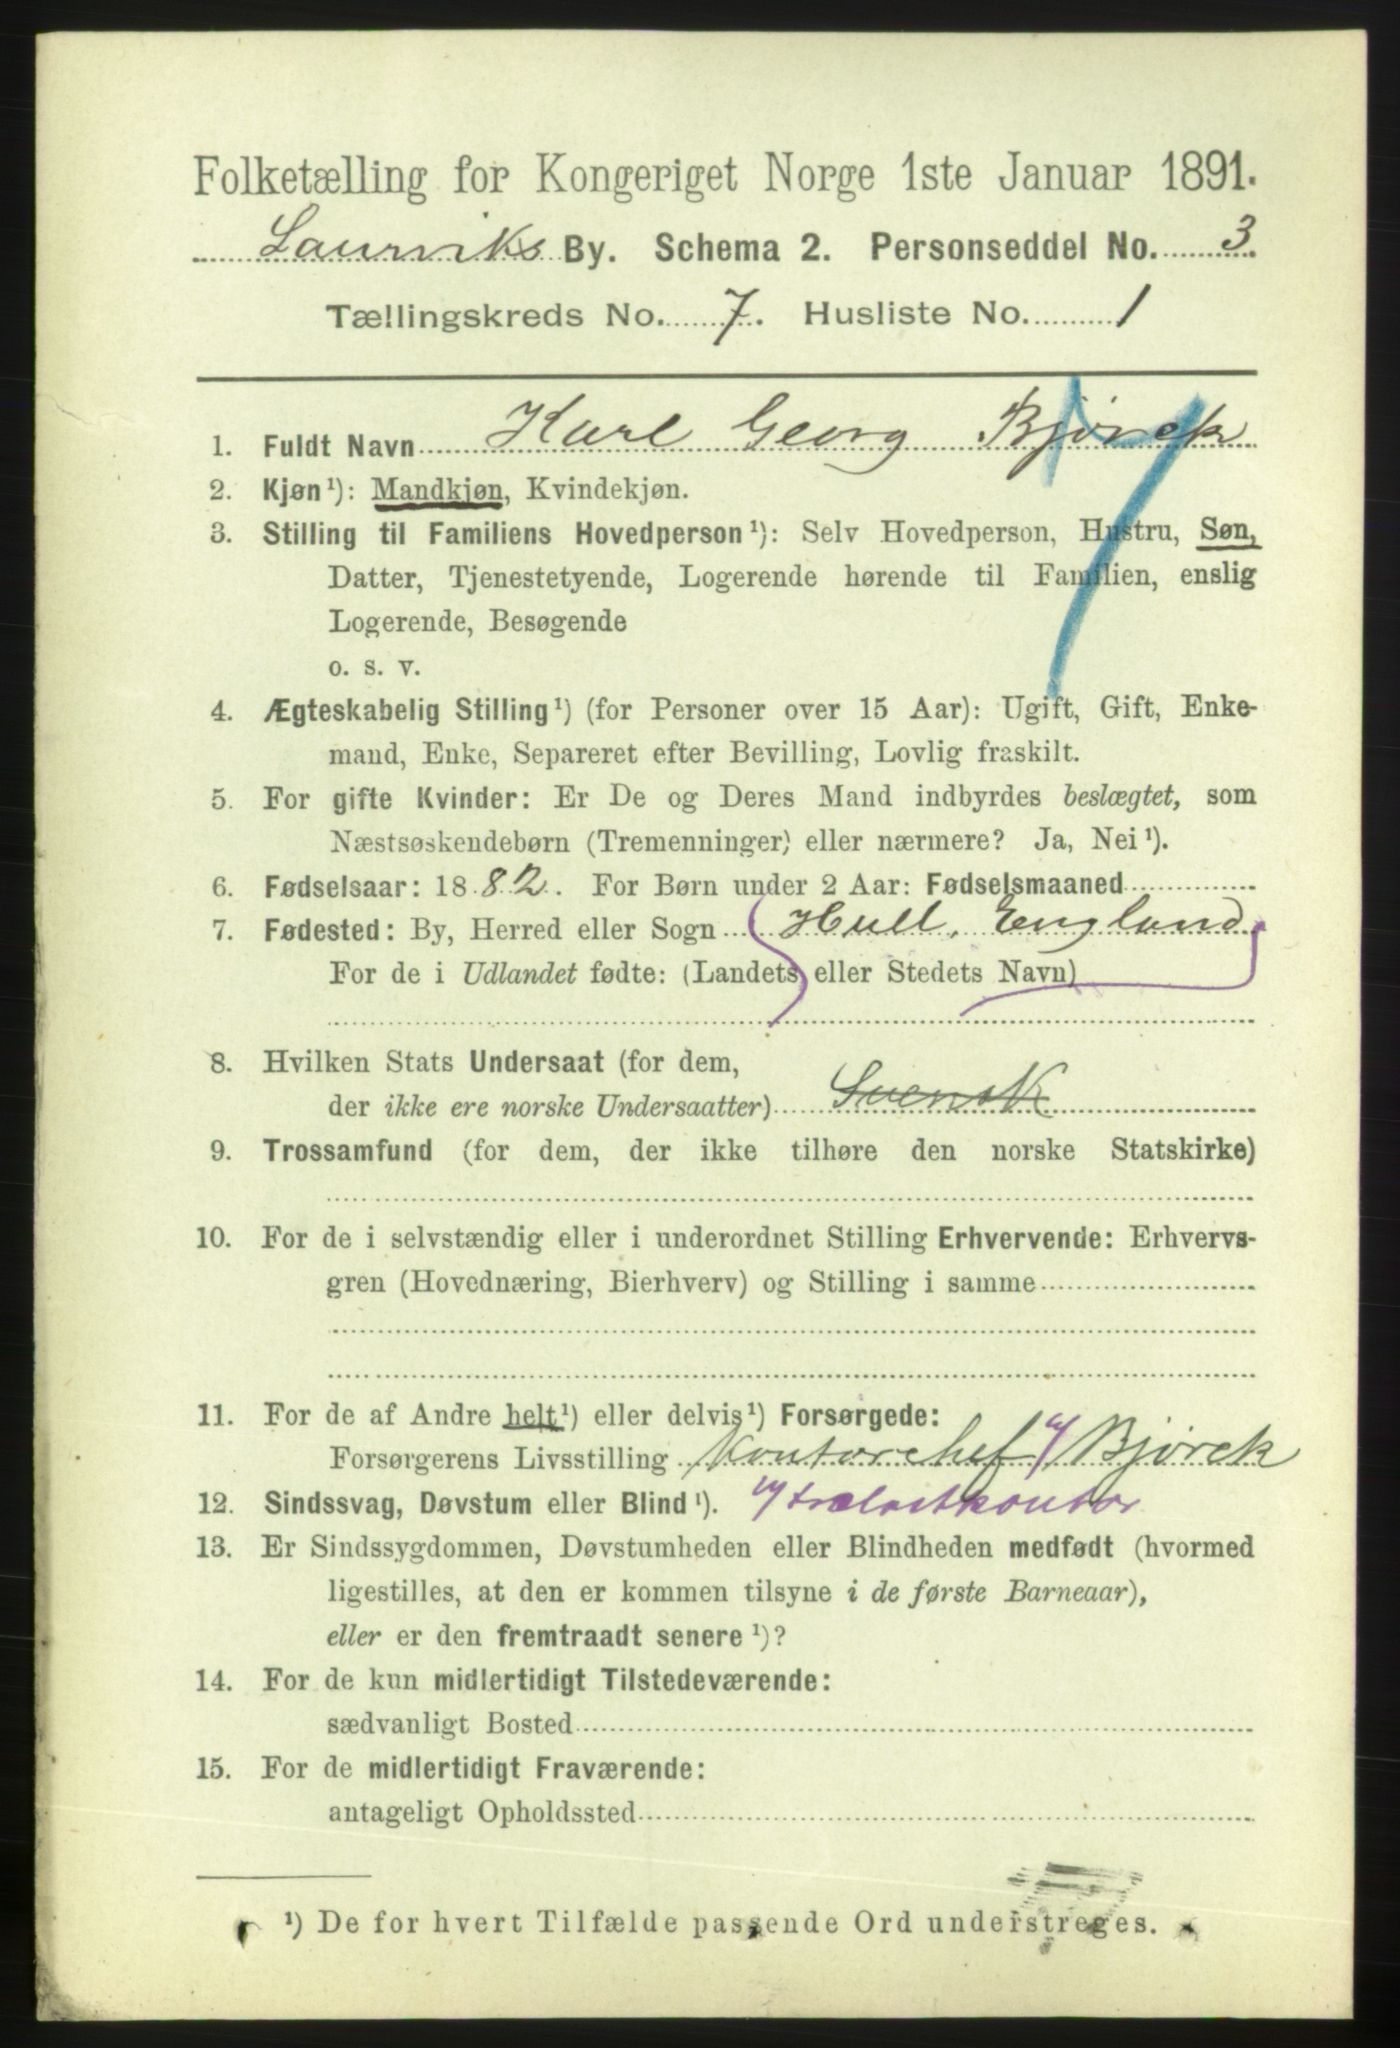 Folketælling for Kongeriget Norge 1ste Januar 1891.
Laurviks By. Schema 2. Personseddel No. 3.
Tællingskreds No. 7. Husliste No. 1
1. Fuldt Navn Karl Georg Bjørck
2. Kjøn¹): Mandkjøn, Kvindekjøn.
3. Stilling til Familiens Hovedperson¹): Selv Hovedperson, Hustru, Søn,
Datter, Tjenestetyende, Logerende hørende til Familien, enslig
Logerende, Besøgende
o. s. v.
4. Ægteskabelig Stilling¹) (for Personer over 15 Aar): Ugift, Gift, Enke-
mand, Enke, Separeret efter Bevilling, Lovlig fraskilt.
5. For gifte Kvinder: Er De og Deres Mand indbyrdes beslægtet, som
Næstsøskendebørn (Tremenninger) eller nærmere? Ja, Nei¹).
6. Fødselsaar: 1882. For Børn under 2 Aar: Fødselsmaaned
7. Fødested: By, Herred eller Sogn Hull, England
For de i Udlandet fødte: (Landets eller Stedets Navn)
8. Hvilken Stats Undersaat (for dem,
der ikke ere norske Undersaatter) Svensk
9. Trossamfund (for dem, der ikke tilhøre den norske Statskirke)
10. For de i selvstændig eller i underordnet Stilling Erhvervende: Erhvervs-
gren (Hovednæring, Bierhverv) og Stilling i samme
11. For de af Andre helt¹) eller delvis¹) Forsørgede:
Forsørgerens Livsstilling Kontorchef Bjørck
12. Sindssvag, Døvstum eller Blind¹). trælastkontor
13. Er Sindssygdommen, Døvstumheden eller Blindheden medfødt (hvormed
ligestilles, at den er kommen tilsyne i de første Barneaar),
eller er den fremtraadt senere¹)?
14. For de kun midlertidigt Tilstedeværende:
sædvanligt Bosted
15. For de midlertidigt Fraværende:
antageligt Opholdssted
¹) De for hvert Tilfælde passende Ord understreges.